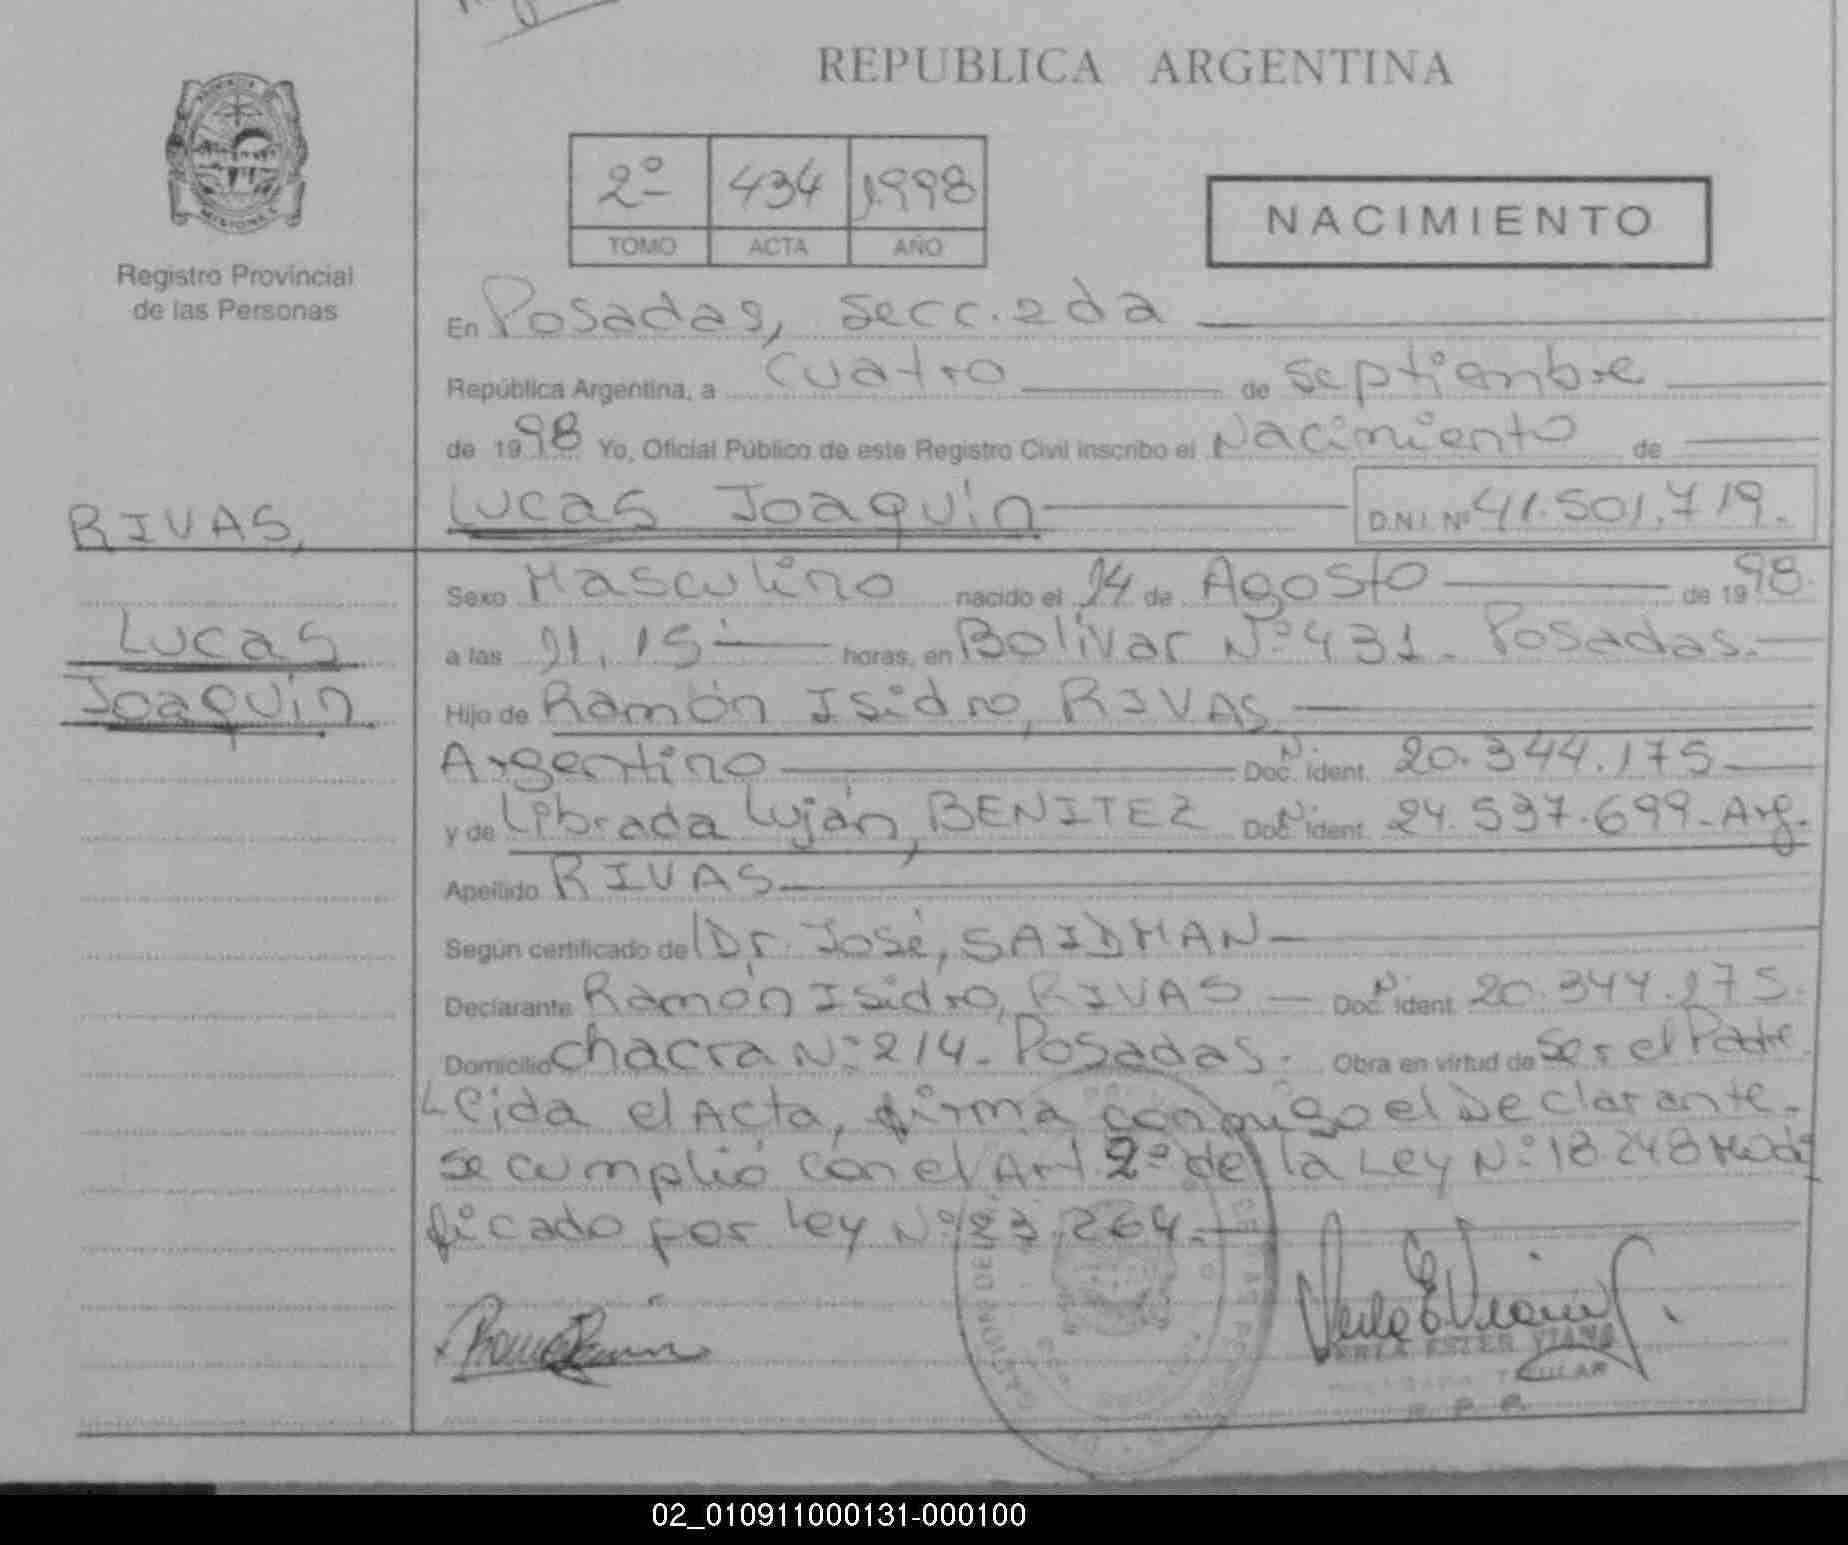 REPUBLICA ARGENTINA
2º 434 1998
TOMO ACTA AÑO
NACIMIENTO
Registro Provincial
de las Personas
En Posadas, secc. 2da
República Argentina, a cuatro de septiembre
de 1998 Yo, Oficial Público de este Registro Civil inscribo el Nacimiento de
RIVAS,
Lucas Joaquín D.N.I. Nº 41.501.719.
Lucas
Joaquín
Sexo Masculino nacido el 14 de Agosto de 1998
a las 11,15 horas, en Bolívar Nº 431. Posadas.
Hijo de Ramón Isidro, RIVAS
Argentino Doc. N. Ident. 20.344.175
y de Librada Luján, BENITEZ Doc. N. Ident. 24.537.699. Arg.
Apellido RIVAS
Según certificado de Dr. José, SAIDMAN
Declarante Ramón Isidro, RIVAS Doc. N. Ident. 20.344.175.
Domicilio chacra Nº 214. Posadas. Obra en virtud de ser el Padre.
Leida el Acta, firma conmigo el Declarante.
se cumplió con el Art 2º de la Ley Nº 18.248 Modi
ficado por Ley Nº 23.264.
ESTER VIANA
TITULAR
R. P. P.
02_010911000131-000100